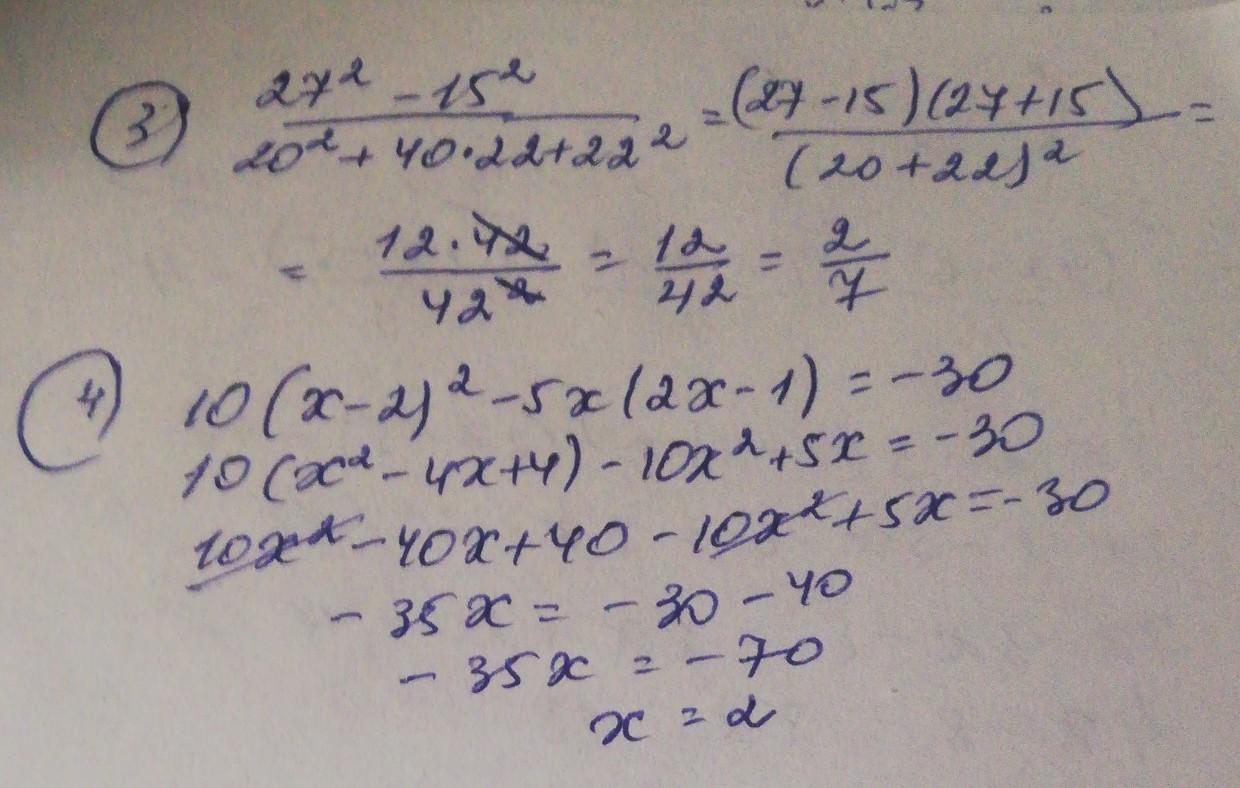 ③ (27² - 15²)/(20² + 40·22+22²) = ((27-15)(27+15))/((20+22)²) =
= (12·42)/(42²) = 12/42 = 2/7
④ 10(x-2)² -5x(2x-1) = -30
10(x² - 4x+4) - 10x² +5x = -30
10x² - 40x+40 - 10x² +5x = -30
- 35x = - 30 - 40
- 35x = - 70
x = 2